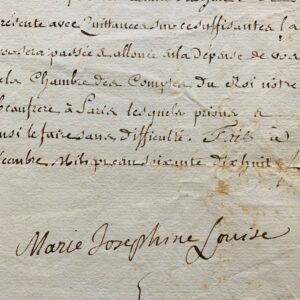 présente avec Quittances sur ce suffisantes la
sera passée & allouée à la dépense de vos
la Chambre des Comptes du Roi notre
beaufrere à Paris lesquels prions
ainsi le faire sans difficulté. Fait à
décembre Mil sept cent soixante dix huit
Marie Josephine Louise